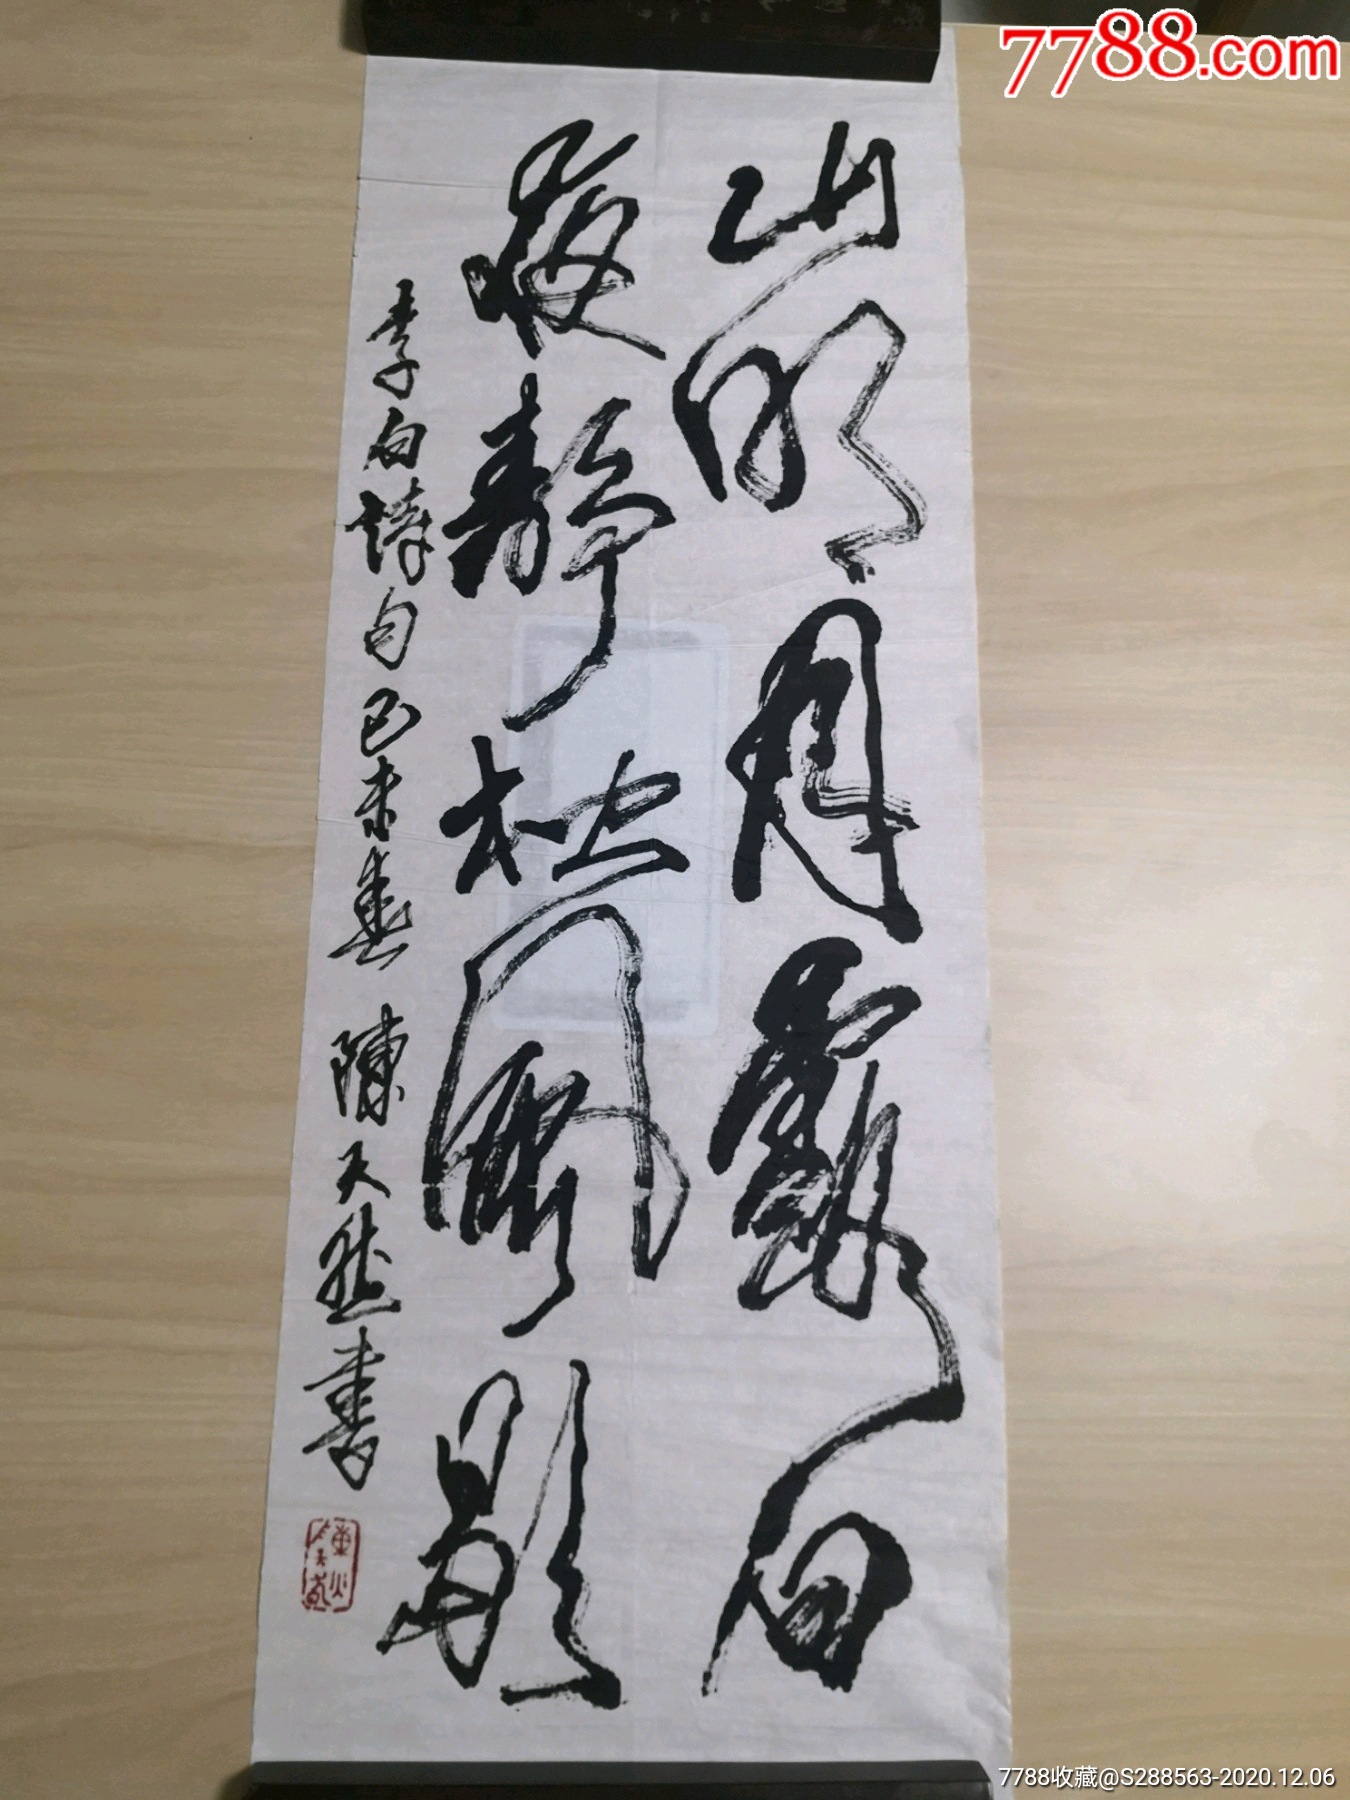 7788.com
山明月露白
夜静松风歇
李白诗句己未春 陈天然书
7788收藏@S288563-2020.12.06